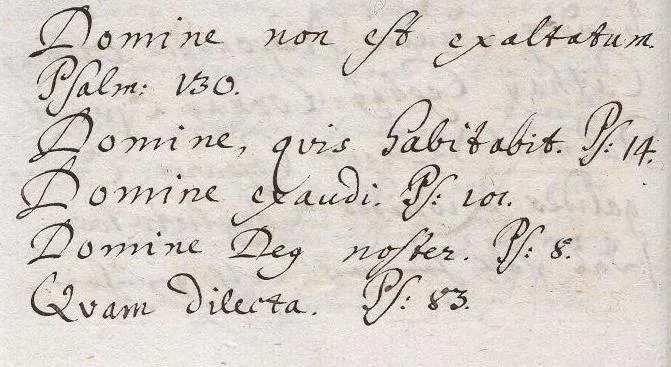 Domine non est exaltatum
Psalm: 130.
Domine, qvis habitabit. Ps: 14.
Domine exaudi. Ps: 101.
Domine Deꝰ noster. Ps: 8.
Qvam dilecta. Ps: 83.